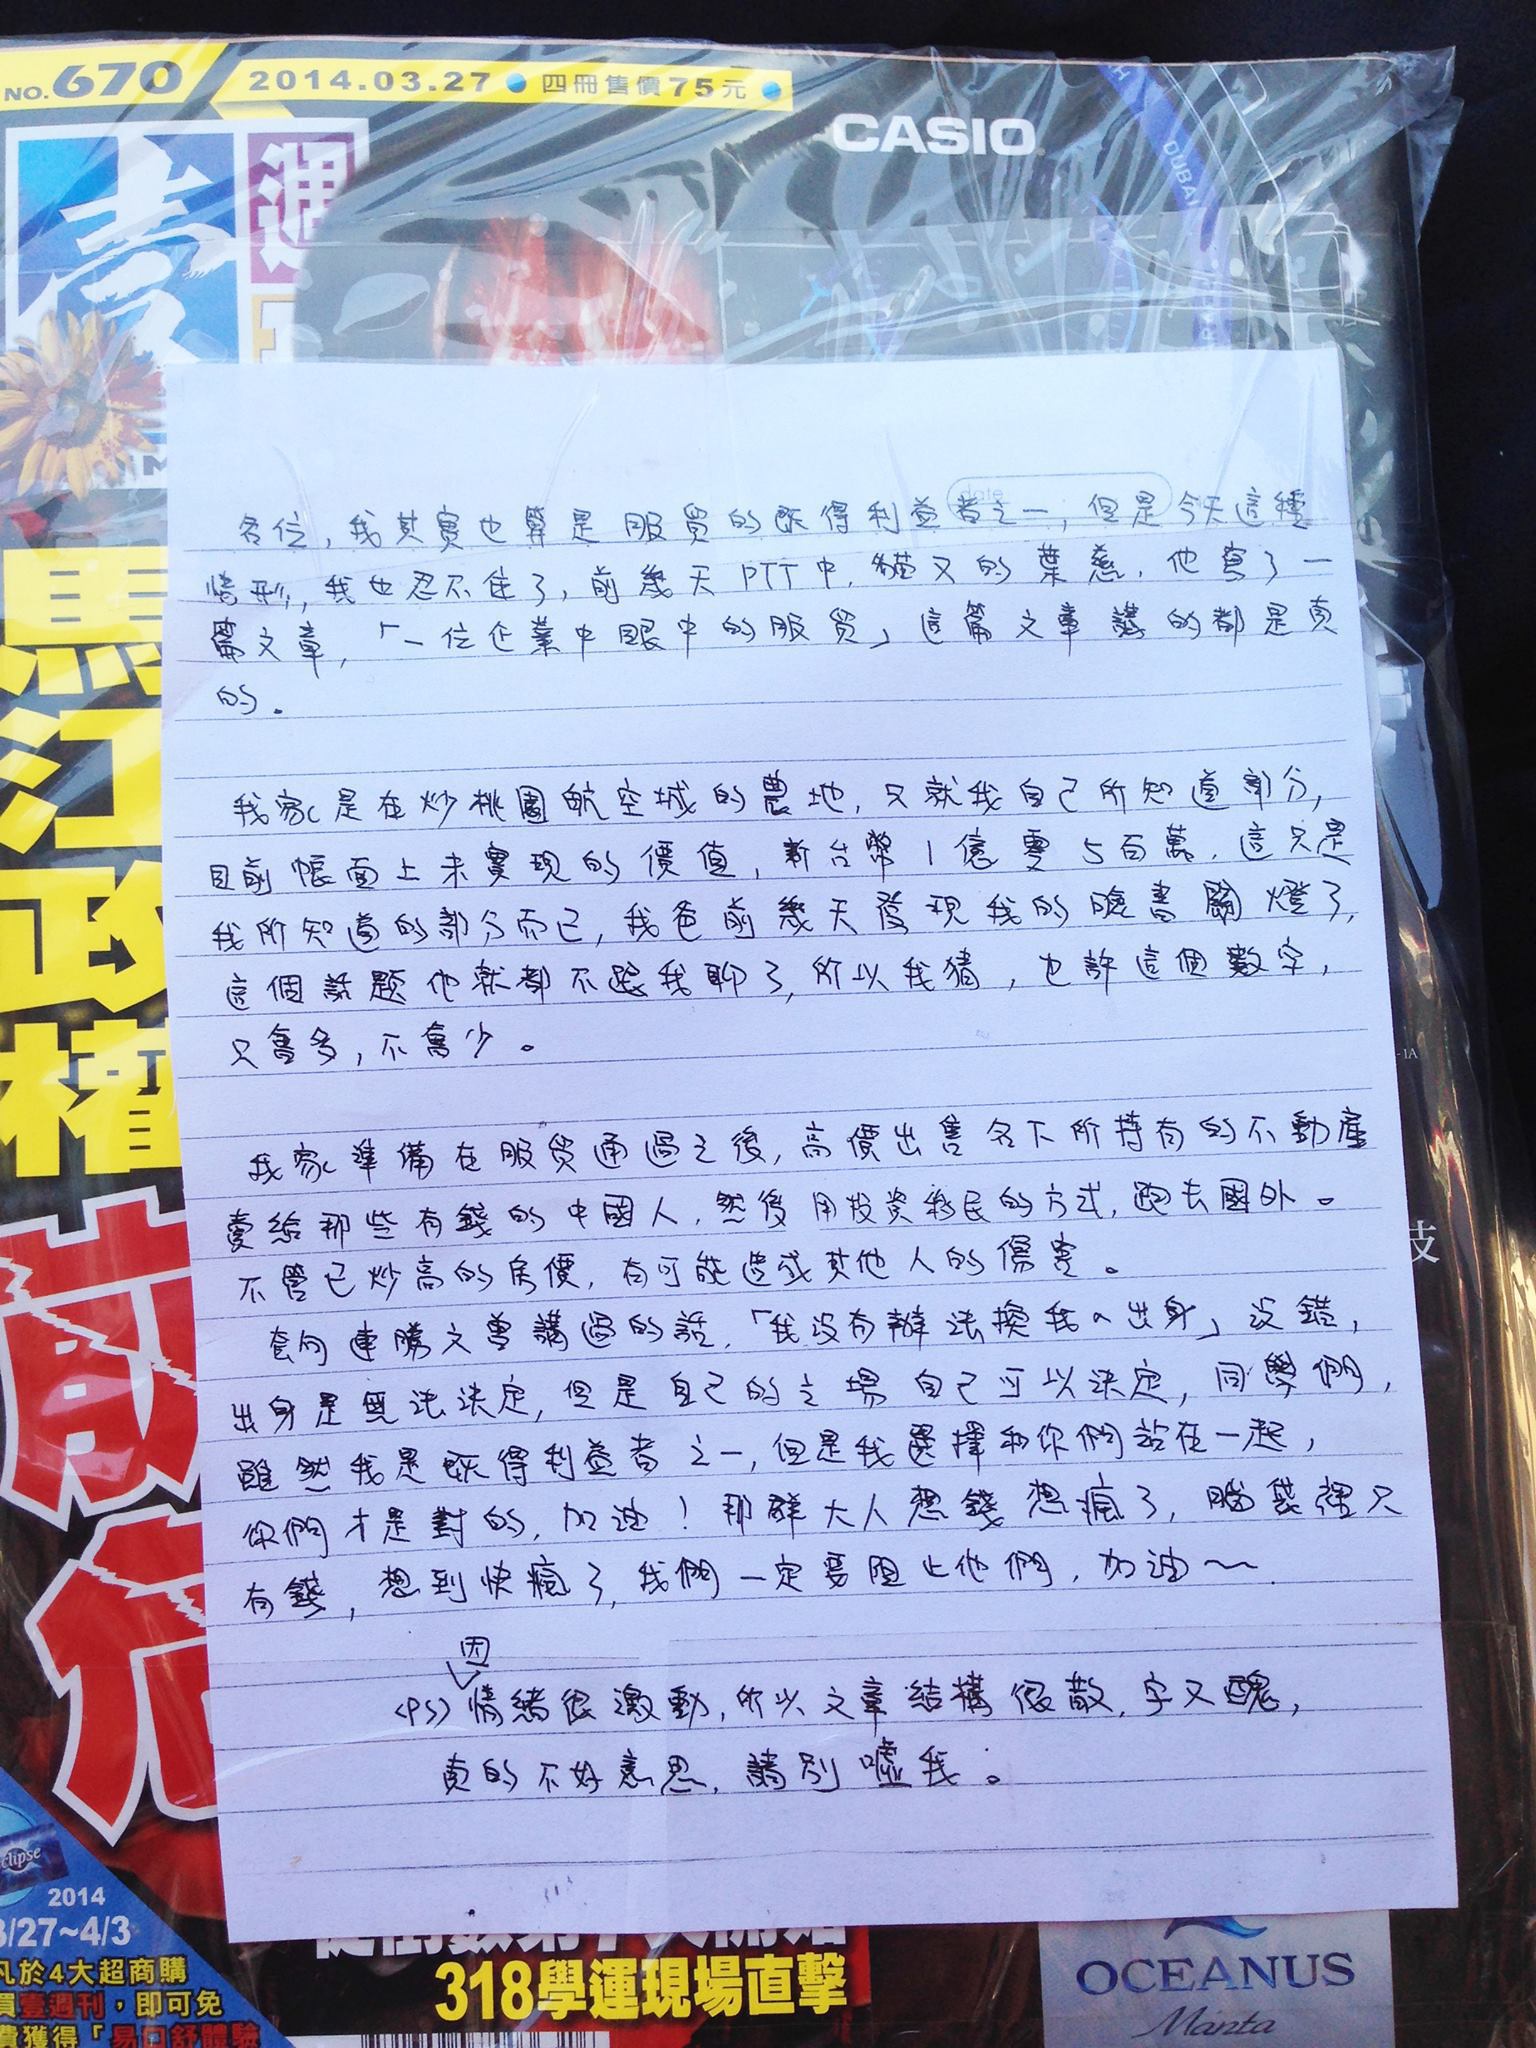 NO.670
2014.03.27 ● 四冊售價75元 ●
CASIO
壹週
DUBAI
馬江政權
前
危
各位，我其實也算是服貿的既得利益者之一，但是今天這種
情形，我也忍不住了，前幾天PTT中，貓又的葉慈，他寫了一
篇文章，「一位企業中眼中的服貿」這篇文章講的都是真
的。
我家是在炒桃園航空城的農地，只就我自己所知道部分，
目前帳面上未實現的價值，新台幣1億零5百萬，這只是
我所知道的部分而已，我爸前幾天發現我的臉書關燈了，
這個話題他就都不跟我聊了，所以我猜，也許這個數字，
只會多，不會少。
我家準備在服貿通過之後，高價出售名下所持有的不動產
賣給那些有錢的中國人，然後用投資移民的方式，跑去國外。
不管已炒高的房價，有可能造成其他人的傷害。
套句連勝文曾講過的話，「我沒有辦法換我的出身」沒錯，
出身是無法決定，但是自己的立場自己可以決定，同學們，
雖然我是既得利益者之一，但是我選擇和你們站在一起，
你們才是對的，加油！那群大人想錢想瘋了，腦袋裡只
有錢，想到快瘋了，我們一定要阻止他們，加油～
因
(PS)情緒很激動，所以文章結構很散，字又醜，
真的不好意思，請別噓我。
-1A
技
clipse
2014
3/27~4/3
凡於4大超商購
買壹週刊，即可免
費獲得「易口舒體驗
318學運現場直擊
OCEANUS
Manta